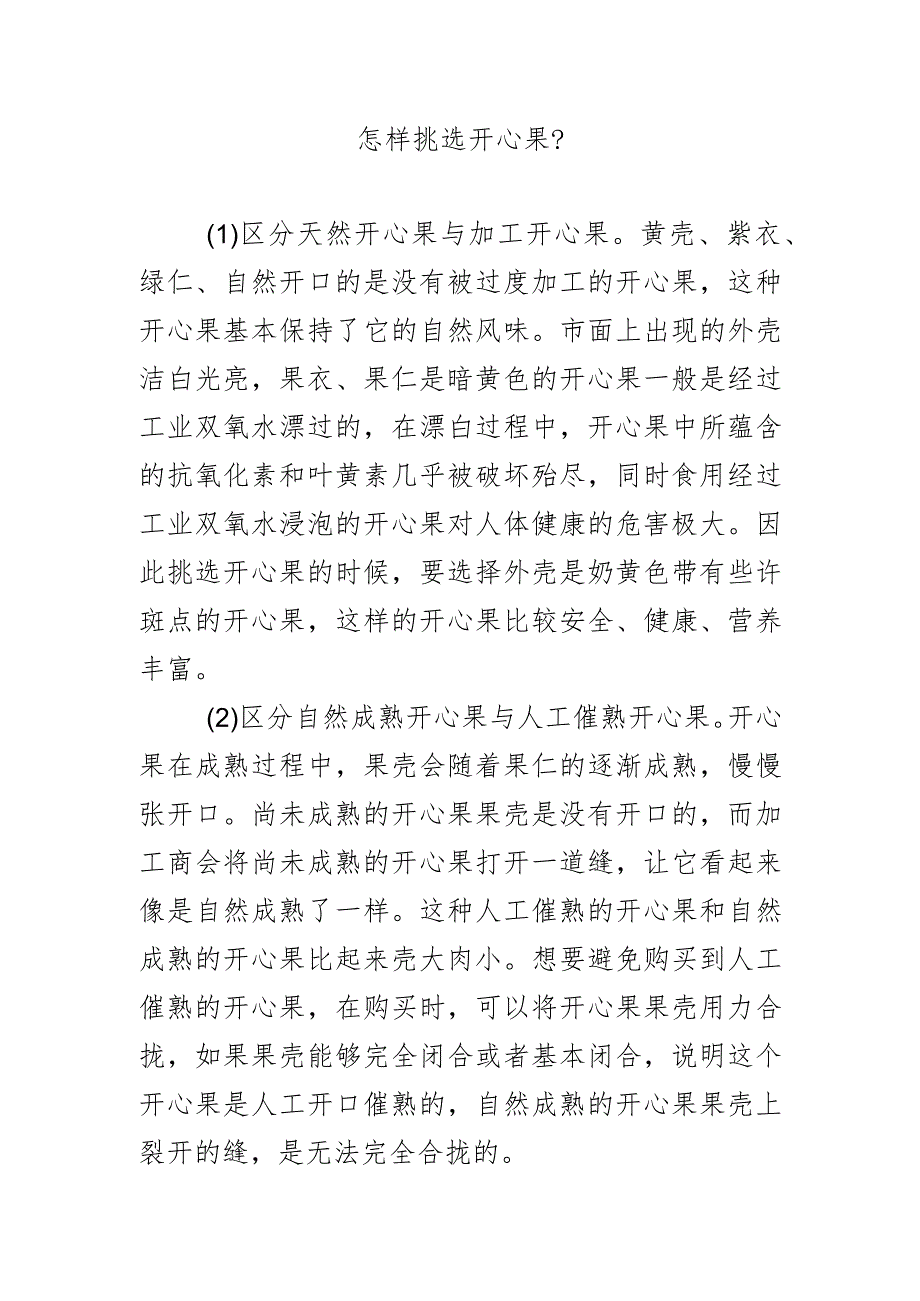 怎样挑选开心果?
(1)区分天然开心果与加工开心果。黄壳、紫衣、
绿仁、自然开口的是没有被过度加工的开心果，这种
开心果基本保持了它的自然风味。市面上出现的外壳
洁白光亮，果衣、果仁是暗黄色的开心果一般是经过
工业双氧水漂过的，在漂白过程中，开心果中所蕴含
的抗氧化素和叶黄素几乎被破坏殆尽，同时食用经过
工业双氧水浸泡的开心果对人体健康的危害极大。因
此挑选开心果的时候，要选择外壳是奶黄色带有些许
斑点的开心果，这样的开心果比较安全、健康、营养
丰富。
(2)区分自然成熟开心果与人工催熟开心果。开心
果在成熟过程中，果壳会随着果仁的逐渐成熟，慢慢
张开口。尚未成熟的开心果果壳是没有开口的，而加
工商会将尚未成熟的开心果打开一道缝，让它看起来
像是自然成熟了一样。这种人工催熟的开心果和自然
成熟的开心果比起来壳大肉小。想要避免购买到人工
催熟的开心果，在购买时，可以将开心果果壳用力合
拢，如果果壳能够完全闭合或者基本闭合，说明这个
开心果是人工开口催熟的，自然成熟的开心果果壳上
裂开的缝，是无法完全合拢的。